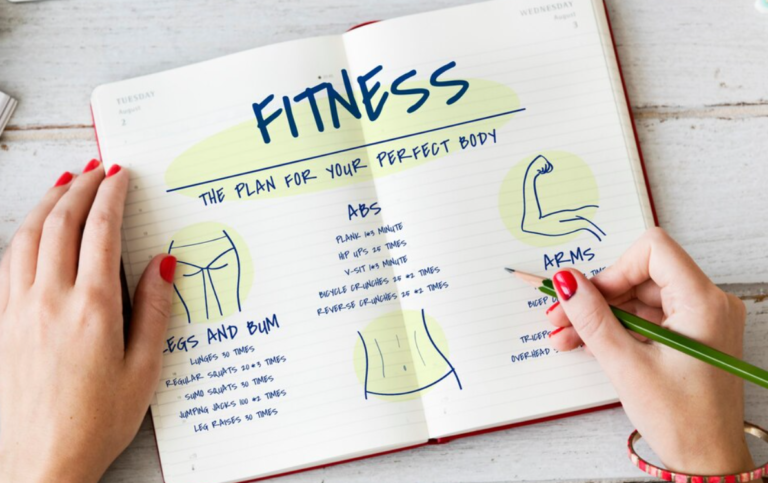 TUESDAY
August
2
WEDNESDAY
August
3
FITNESS
THE PLAN FOR YOUR PERFECT BODY
LEGS AND BUM
LUNGES 30 TIMES
REGULAR SQUATS 20*3 TIMES
SUMO SQUATS 30 TIMES
JUMPING JACKS 100 *2 TIMES
LEG RAISES 30 TIMES
ABS
PLANK 1*3 MINUTE
HIP UPS 25 TIMES
V-SIT 1*3 MINUTE
BICYCLE CRUNCHES 25 *2 TIMES
REVERSE CRUNCHES 25 *2 TIMES
ARMS
TIMES
TRICEPS
OVERHEAD